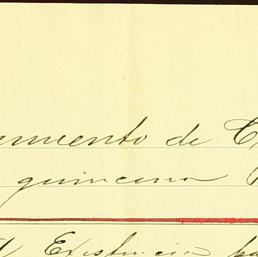 amiento de C
quincena
Existencia pa